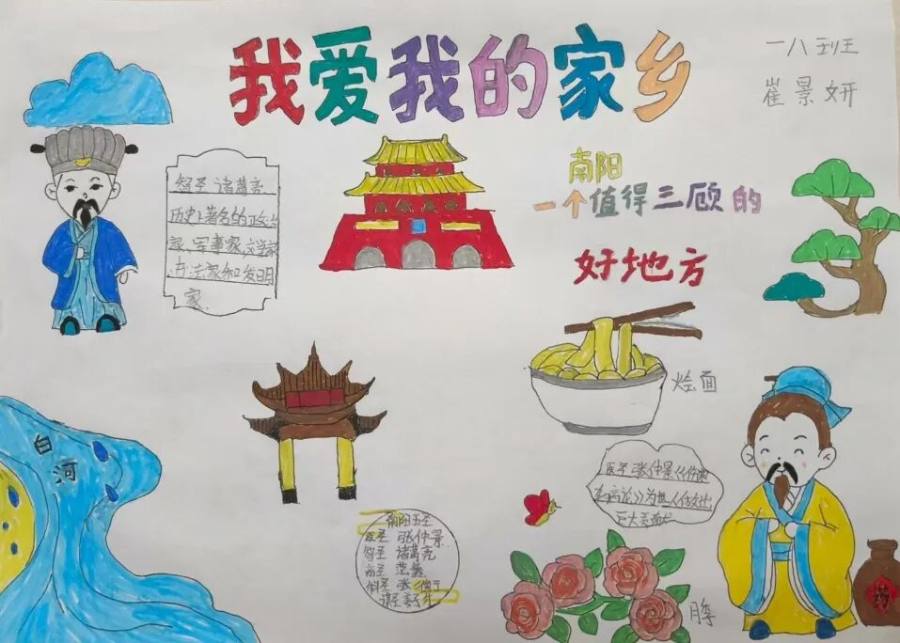 我爱我的家乡
一八班
崔景妍
南阳
一个值得三顾的
好地方
智圣 诸葛亮,
历史上著名的政治
家、军事家、文学家
、书法家和发明
家
烩面
白河
医圣 张仲景《伤寒
杂病论》为世人
巨大贡献
南阳五圣
医圣 张仲景
智圣 诸葛亮
商圣 范蠡
科圣 张衡
谋圣 姜子牙
月季
药